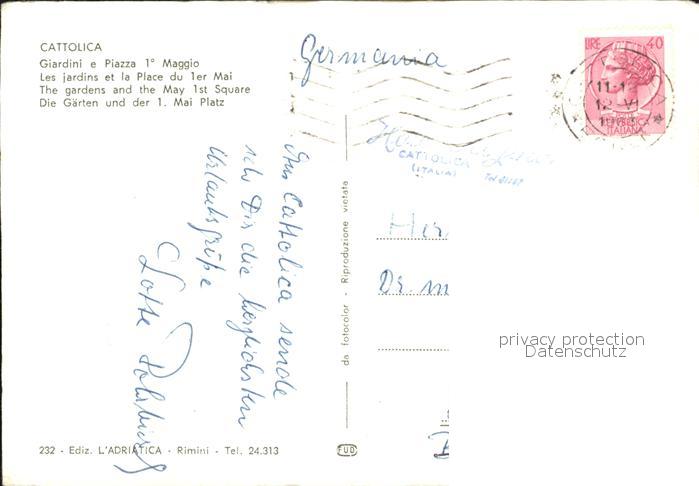 CATTOLICA
Giardini e Piazza 1° Maggio
Les jardins et la Place du 1er Mai
The gardens and the May 1st Square
Die Gärten und der 1. Mai Platz
Germania
LIRE 40
POSTE
REPUBBLICA
ITALIANA
CATTOLICA
(ITALIA)
Aus Cattolica sende
ich Dir die herzlichsten
Urlaubsgrüße
Lotte
da fotocolor - Riproduzione vietata
Her
Dr. m
privacy protection
Datenschutz
232 - Ediz. L'ADRIATICA - Rimini - Tel. 24.313